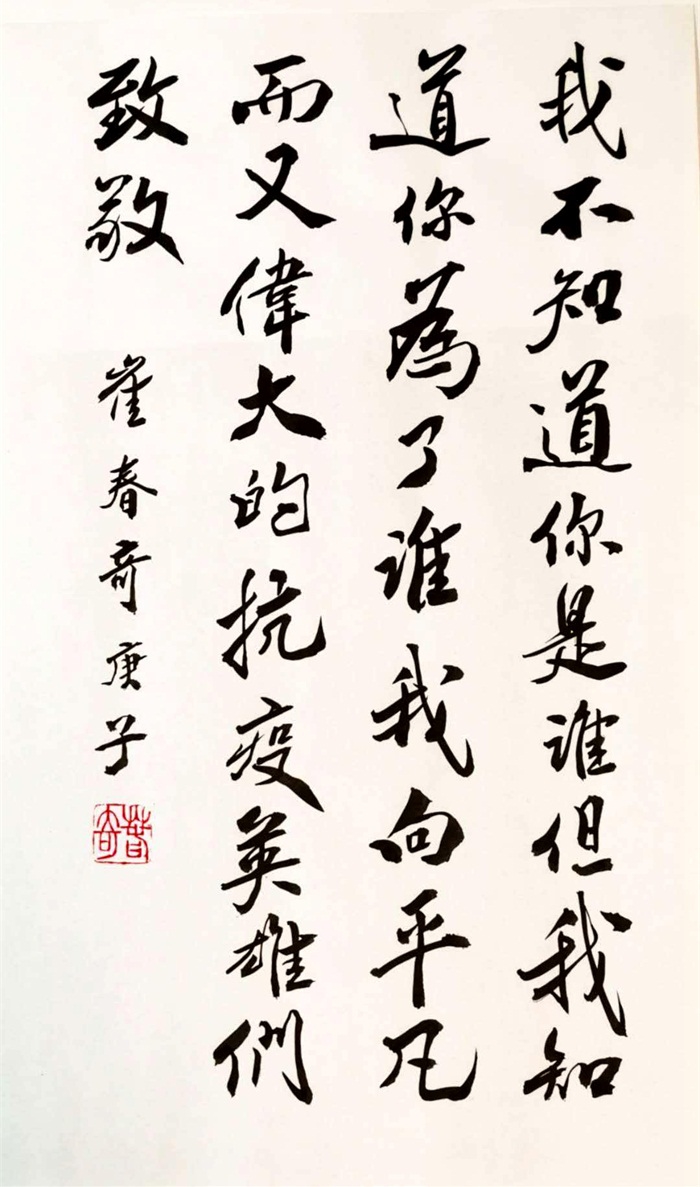 我不知道你是谁但我知
道你為了谁我向平凡
而又偉大的抗疫英雄們
致敬
崔春奇庚子
春奇